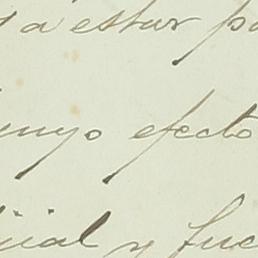 ya estar pa
unyo efecto
icial y fue